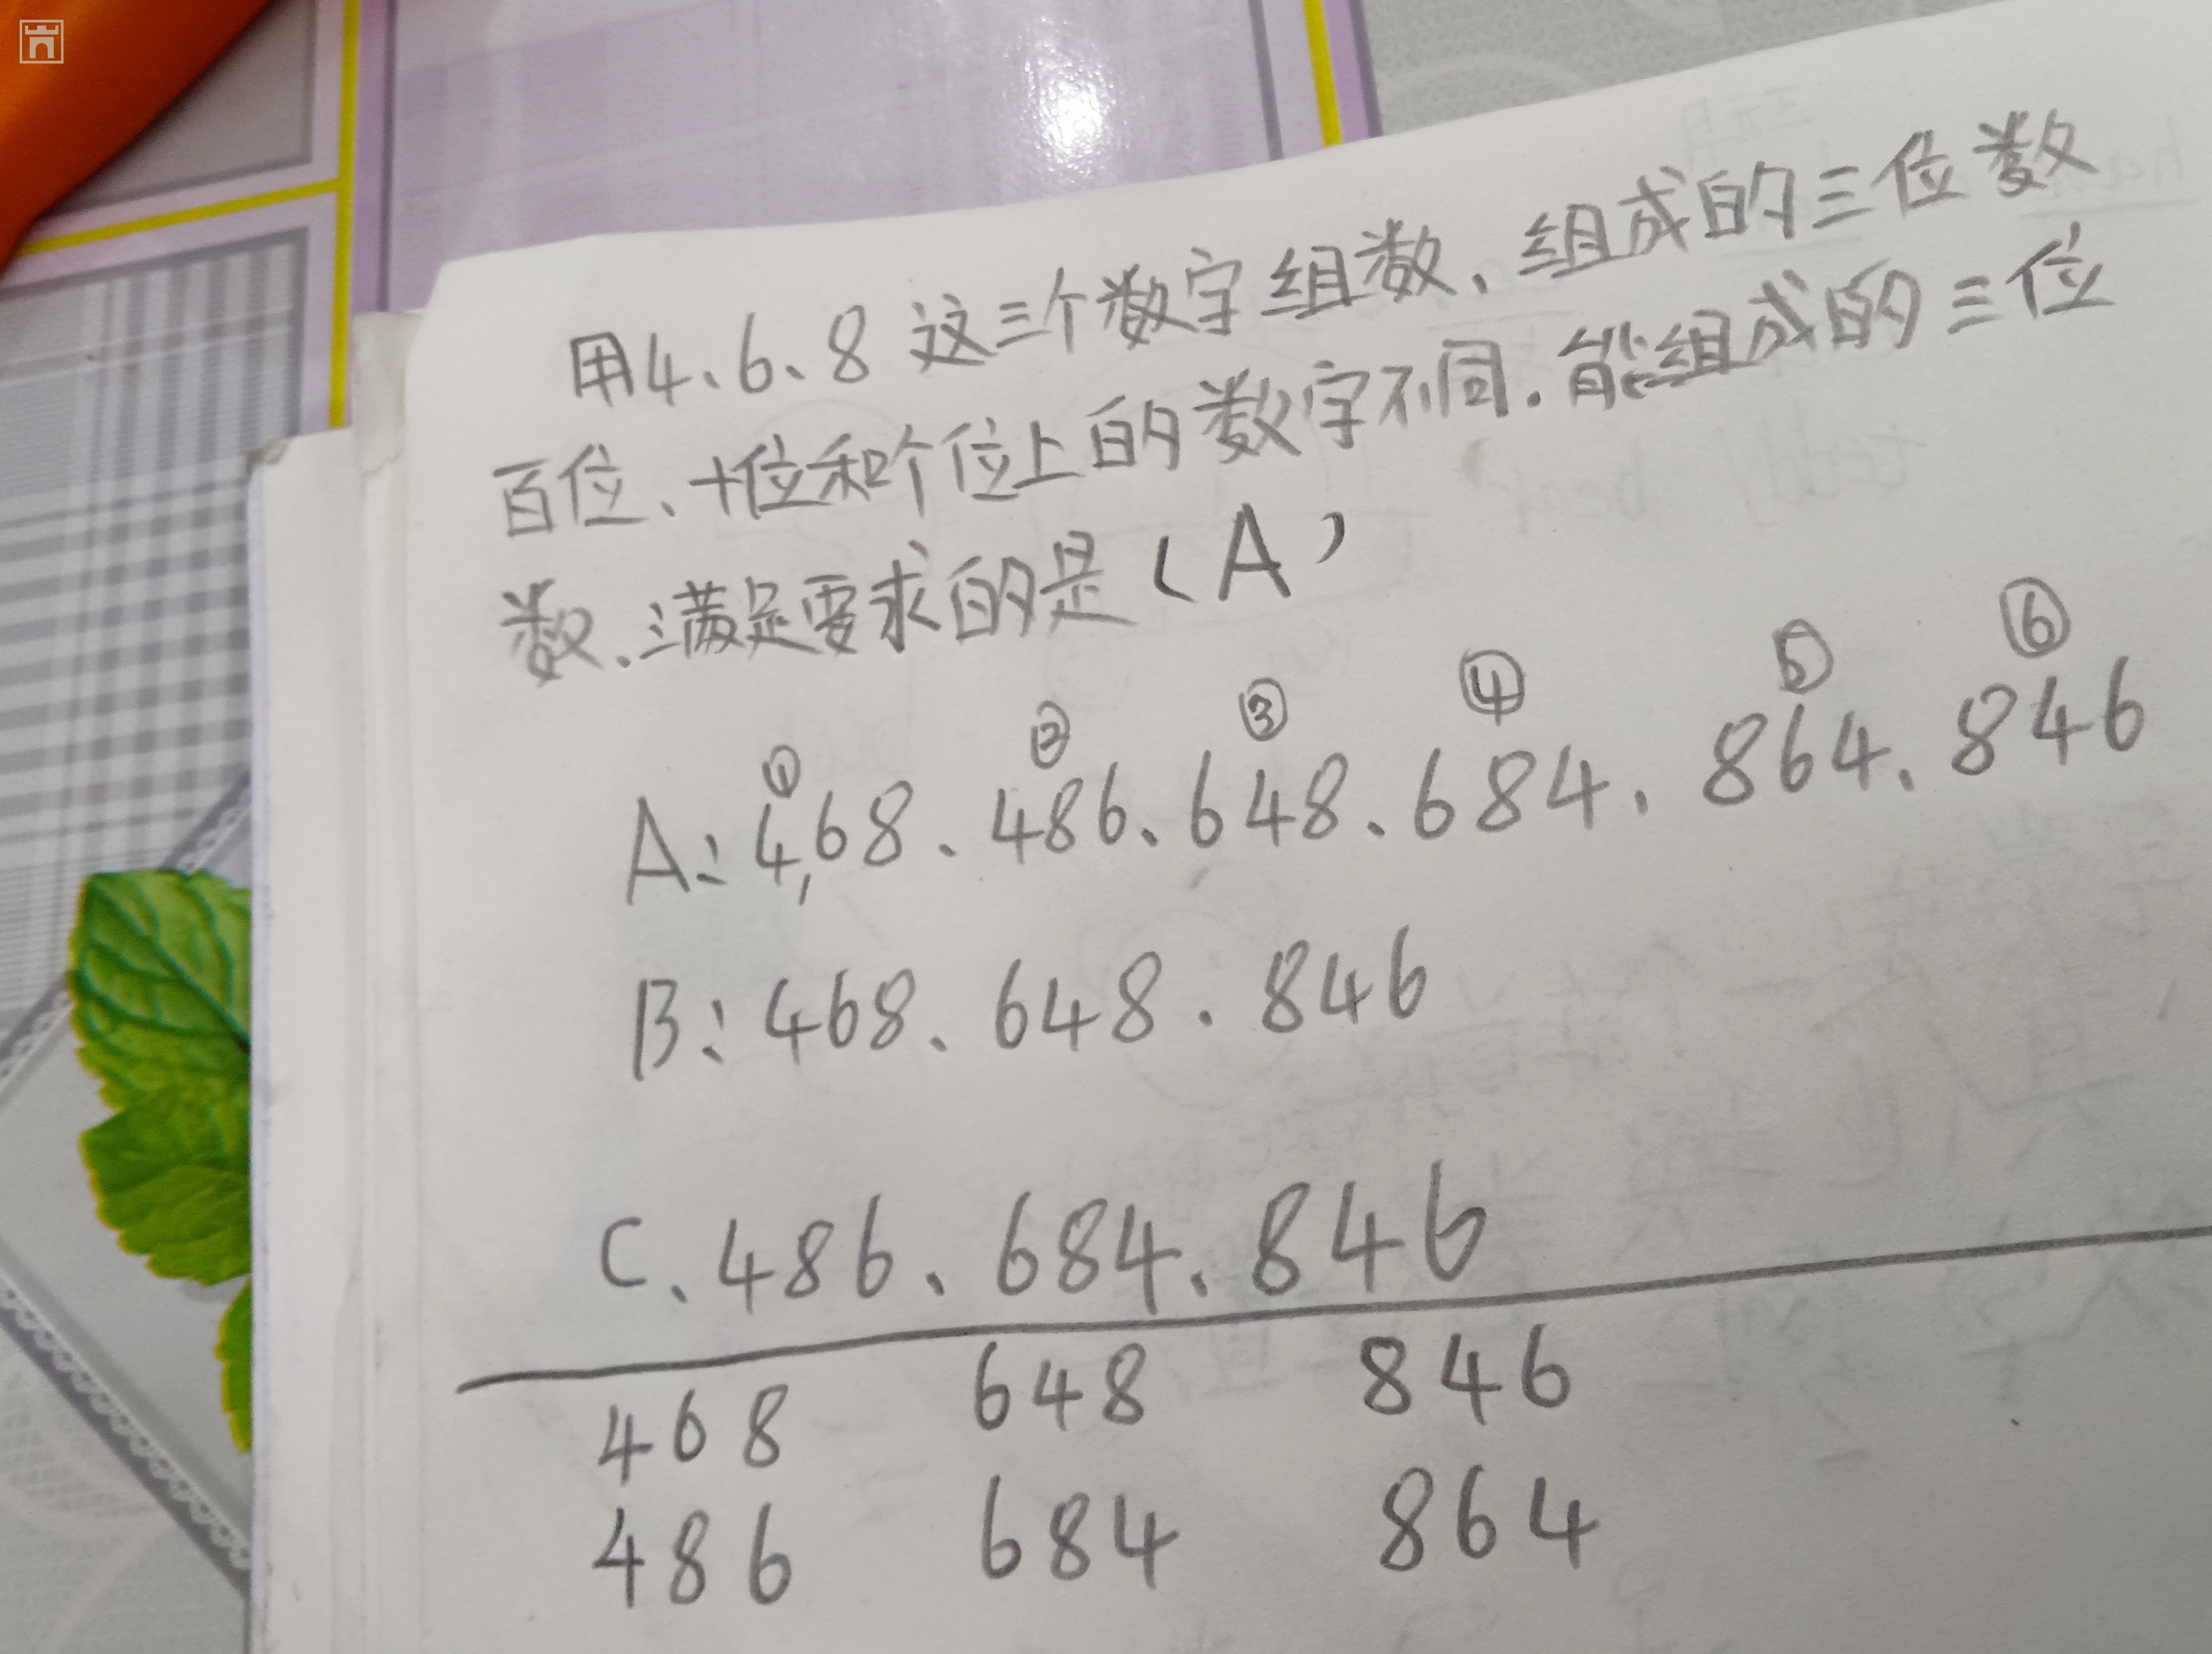 用4、6、8这三个数字组数、组成的三位数
百位、十位和个位上的数字不同.能组成的三位
数、满足要求的是(A)
① ② ③ ④ ⑤ ⑥
A:468.486、648.684.864.846
B:468、648.846
C、486、684.846
468 648 846
486 684 864